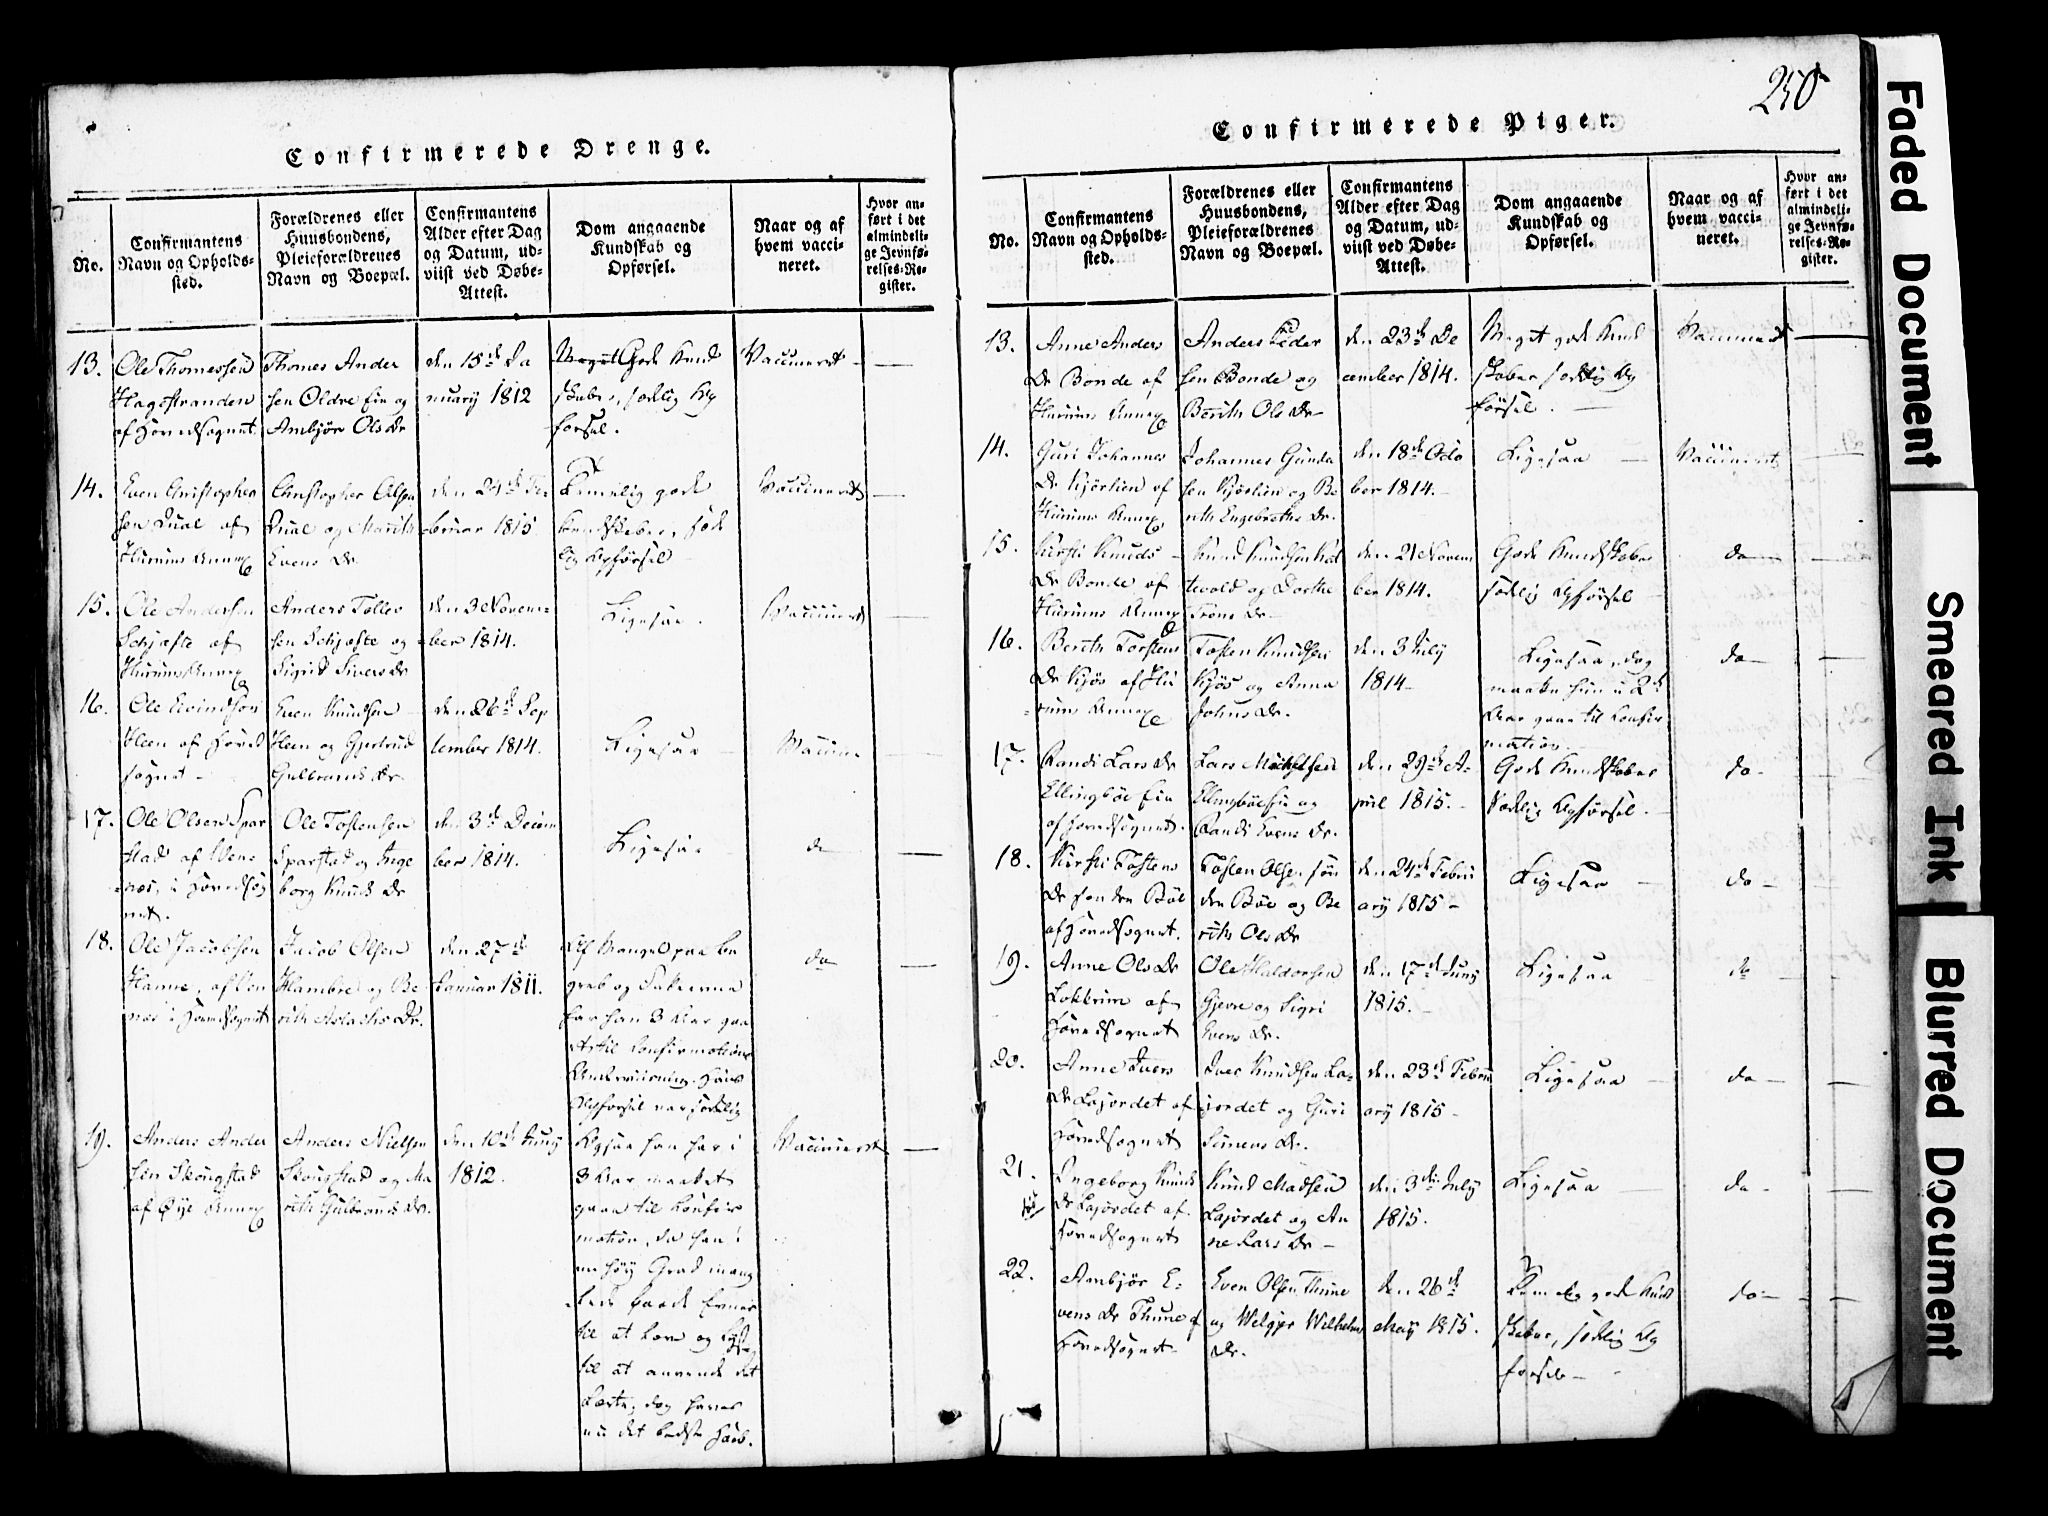 250
Confirmerede Drenge.
No.
Confirmantens
Navn og Opholds-
sted.
Forældrenes eller
Huusbondens,
Pleieforældrenes
Navn og Boepæl.
Confirmantens
Alder efter Dag
og Datum, ud-
viist ved Døbe-
Attest.
Dom angaaende
Kundskab og
Opførsel.
Naar og af
hvem vacci-
neret.
Hvor an-
ført i det
almindeli-
ge Jevnfø-
relses-Re-
gister.
13.
Ole Thomessen
Hagestranden
af Hovedsognet
Thomes Ander
sen Oldre
og
Ambjør Ols Dr
den 15de Ja
nuary 1812
Meget Gode Kund
skaber, sædelig Op
førsel.
Vaccineret
14.
Even Christopher
sen Qual af
Hurums Annex
Christopher Olsen
Qual og Marith
Evens Dr
den 24de Fe
bruar 1815
Temmelig gode
Kundskaber, sæde
lig Opførsel
Vaccineret
15.
Ole Andersen
Schjefte af
Hurums Annex
Anders Tollev
sen Schjefte og
Sigrid Sivers Dr
den 3 Novem-
ber 1814.
Ligesaa.
Vaccineret
16.
Ole Eivindsøn
Heen af Hoved
sognet
Even Knudsen
Heen og Gjertrud
Gulbrands Dr
den 26de Sep
tember 1814.
Ligesaa
Vaccine
17.
Ole Olsen Spar
stad af Vens
næs i Hovedsog
net.
Ole Tostensen
Sparstad og Inge
borg Knuds Dr
den 3de Decem
ber 1814.
Ligesaa
do
18.
Ole Jacobsen
Hamre, af
næs i Hovedsognet
Jacob Olsen
Hambre og Be
rith Aslachs Dr.
den 27de
Januar 1811.
Af Mangel paa Be
greb og
har han 3 Aar gaa
et til Confirmations
Underviisning. Hans
Opførsel var sædelig
do
19.
Anders Ander
sen Skougstad
af Øye Annex
Anders Nielsen
Skougstad og Ma
rith Gulbrands Dr.
den 10de Juny
1812.
Ogsaa han har i
3 Aar maattet
gaae til Confir
mation, da han i
en høy Grad mang
lede baade Evner
til at lære og Lyst
til at anvende det
Lærte, dog haves
nu det bedste Haab.
Vaccineret
Confirmerede Piger.
No.
Confirmantens
Navn og Opholds-
sted.
Forældrenes eller
Huusbondens,
Pleieforældrenes
Navn og Boepæl.
Confirmantens
Alder efter Dag
og Datum, ud-
viist ved Døbe-
Attest.
Dom angaaende
Kundskab og
Opførsel.
Naar og af
hvem vacci-
neret.
Hvor an-
ført i det
almindeli-
ge Jevnfø-
relses-Re-
gister.
13.
Anne Anders
Dr Bonde af
Hurums Annex
Anders Peder
sen Bonde og
Berith Ols Dr
den 23de De
cember 1814.
Meget gode Kund
skaber sædelig Op
førsel.
Vaccineret
14.
Guri Johannes
Dr Kjørlien af
Hurums Annex,
Johannes Gunda
sen Kjørlien og Be
rith Engebrethe Dr.
den 18de Octo
ber 1814.
Ligesaa
Vaccineret
15.
Kirsti Knuds
Dr Bonde af
Hurums Annex
Knud Knudsen
og Dorthe
Trons Dr
den 21 Novem
ber 1814.
Gode Kundskaber
sædelig Opførsel
do
16.
Berith Torstens
Dr Kjøs af Hu
rums Annex
Tosten Knudsen
Kjøs og Anna
Johns Dr.
den 3 July
1814
Ligesaa, dog
maatte hun i 2de
Aar gaae til Confir
mation.
do
17.
Randi Lars Dr
Ellingbøe
af Hovedsognet.
Lars Michelsen
Ellingbøe
og
Randi Evens Dr.
den 29de A-
pril 1815.
Gode Kundskaber
Sædelig Opførsel.
do
18.
Kirsti Tostens
Dr sønden Bøe
af Hovedsognet.
Tosten Olsen søn
den Bøe og Be
rith Ols Dr
den 24de Febru
ary 1815
Ligesaa
do
19.
Anne Ols Dr
Lokbrim af
Hovedsognet
Ole Haldorsen
Gjevre og Sigri
Evens Dr.
den 17de Juny
1815.
Ligesaa
do
20.
Anne Ivers
Dr Lajordet af
Hovedsognet
Iver Knudsen La-
jordet og Guri
Simens Dr.
den 23de Febru
ary 1815
Ligesaa
do
21.
Ingeborg Knuds
Dr Lajordet af
Hovedsognet
Knud Madsen
Lajordet og An
ne Lars Dr
den 3die July
1815.
Ligesaa
do
22.
Ambjør E-
vens Dr Thune af
Hovedsognet
Even Olsen Thune
og Welgjer Wilhelms
Dr.
den 26de
May 1815.
Temelig gode Kund
skaber, sædelig Op
førsel
do
Faded Document
Smeared Ink
Blurred Document